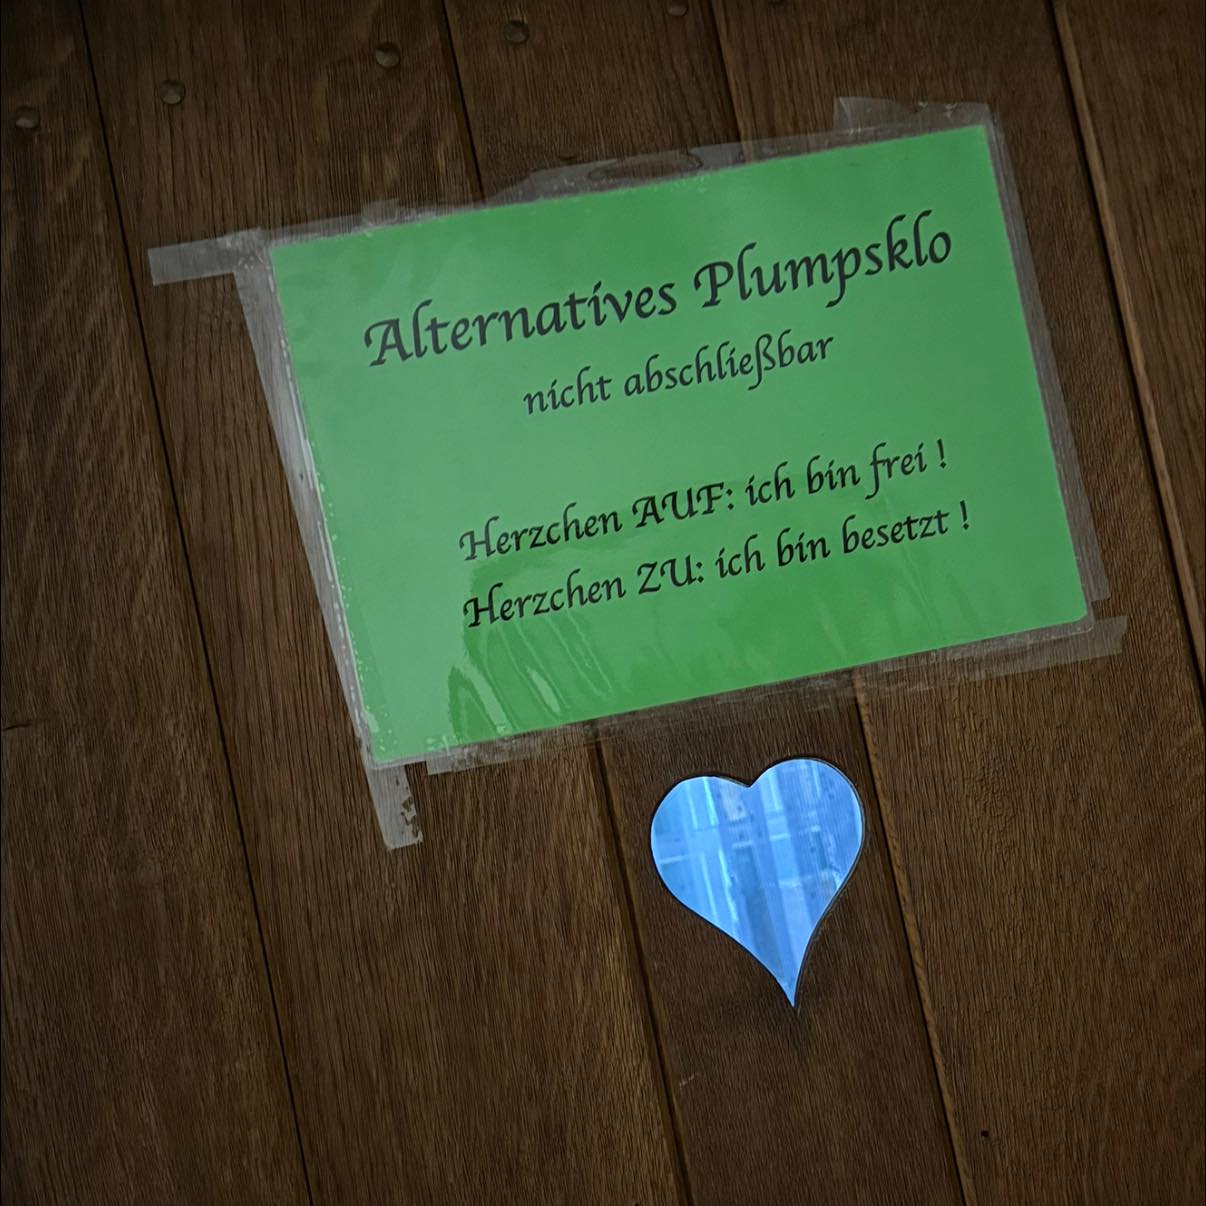 Alternatives Plumpsklo
nicht abschließbar
Herzchen AUF: ich bin frei !
Herzchen ZU: ich bin besetzt !